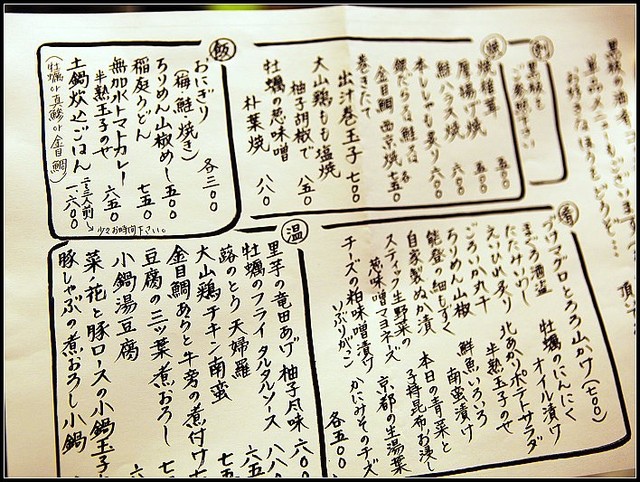 頂
黒板を
焼
焼椎茸 五〇〇
厚揚げ焼 五〇〇
鮭ハラス焼 六〇〇
本ししゃも炙り 六〇〇
金目鯛 西京焼 七五〇
巻きたて
出汁巻玉子 七〇〇
大山鶏もも塩焼
柚子胡椒で 八五〇
牡蠣の葱味噌
朴葉焼 八八〇
飯
おにぎり
(梅・鮭・焼き) 各三〇〇
ちりめん山椒めし 五〇〇
稲庭うどん 七五〇
無加水トマトカレー
半熟玉子のせ 六五〇
土鍋炊込ごはん 二・三人前 一、六〇〇
(牡蠣 or 真鯵 or 金目鯛)
少々お時間下さい。
肴
クロマグロとろろ山かけ(七〇〇)
まぐろ酒盗
牡蠣のにんにく
オイル漬け
たたみいわし
えいひれ炙り
北あかりポテトサラダ
半熟玉子のせ
ごろいか丸干
ちりめん山椒
鮮魚いろいろ
南蛮漬け
能登の細もずく
自家製ぬか漬
本日の青菜と
子持昆布お浸し
スティック生野菜の
葱味噌マヨネーズ
京都の生湯葉
チーズの粕味噌漬け
いぶりがっこ
かにみそのチーズ
各五〇〇
温
里芋の竜田あげ 柚子風味 六〇〇
牡蠣のフライ タルタルソース 八八
蕗のとう 天婦羅 六五
大山鶏チキン南蛮 七五
金目鯛あらと牛蒡の煮付け 七
豆腐の三ツ葉煮おろし
小鍋湯豆腐
菜ノ花と豚ロースの小鍋玉子
豚しゃぶの煮おろし小鍋